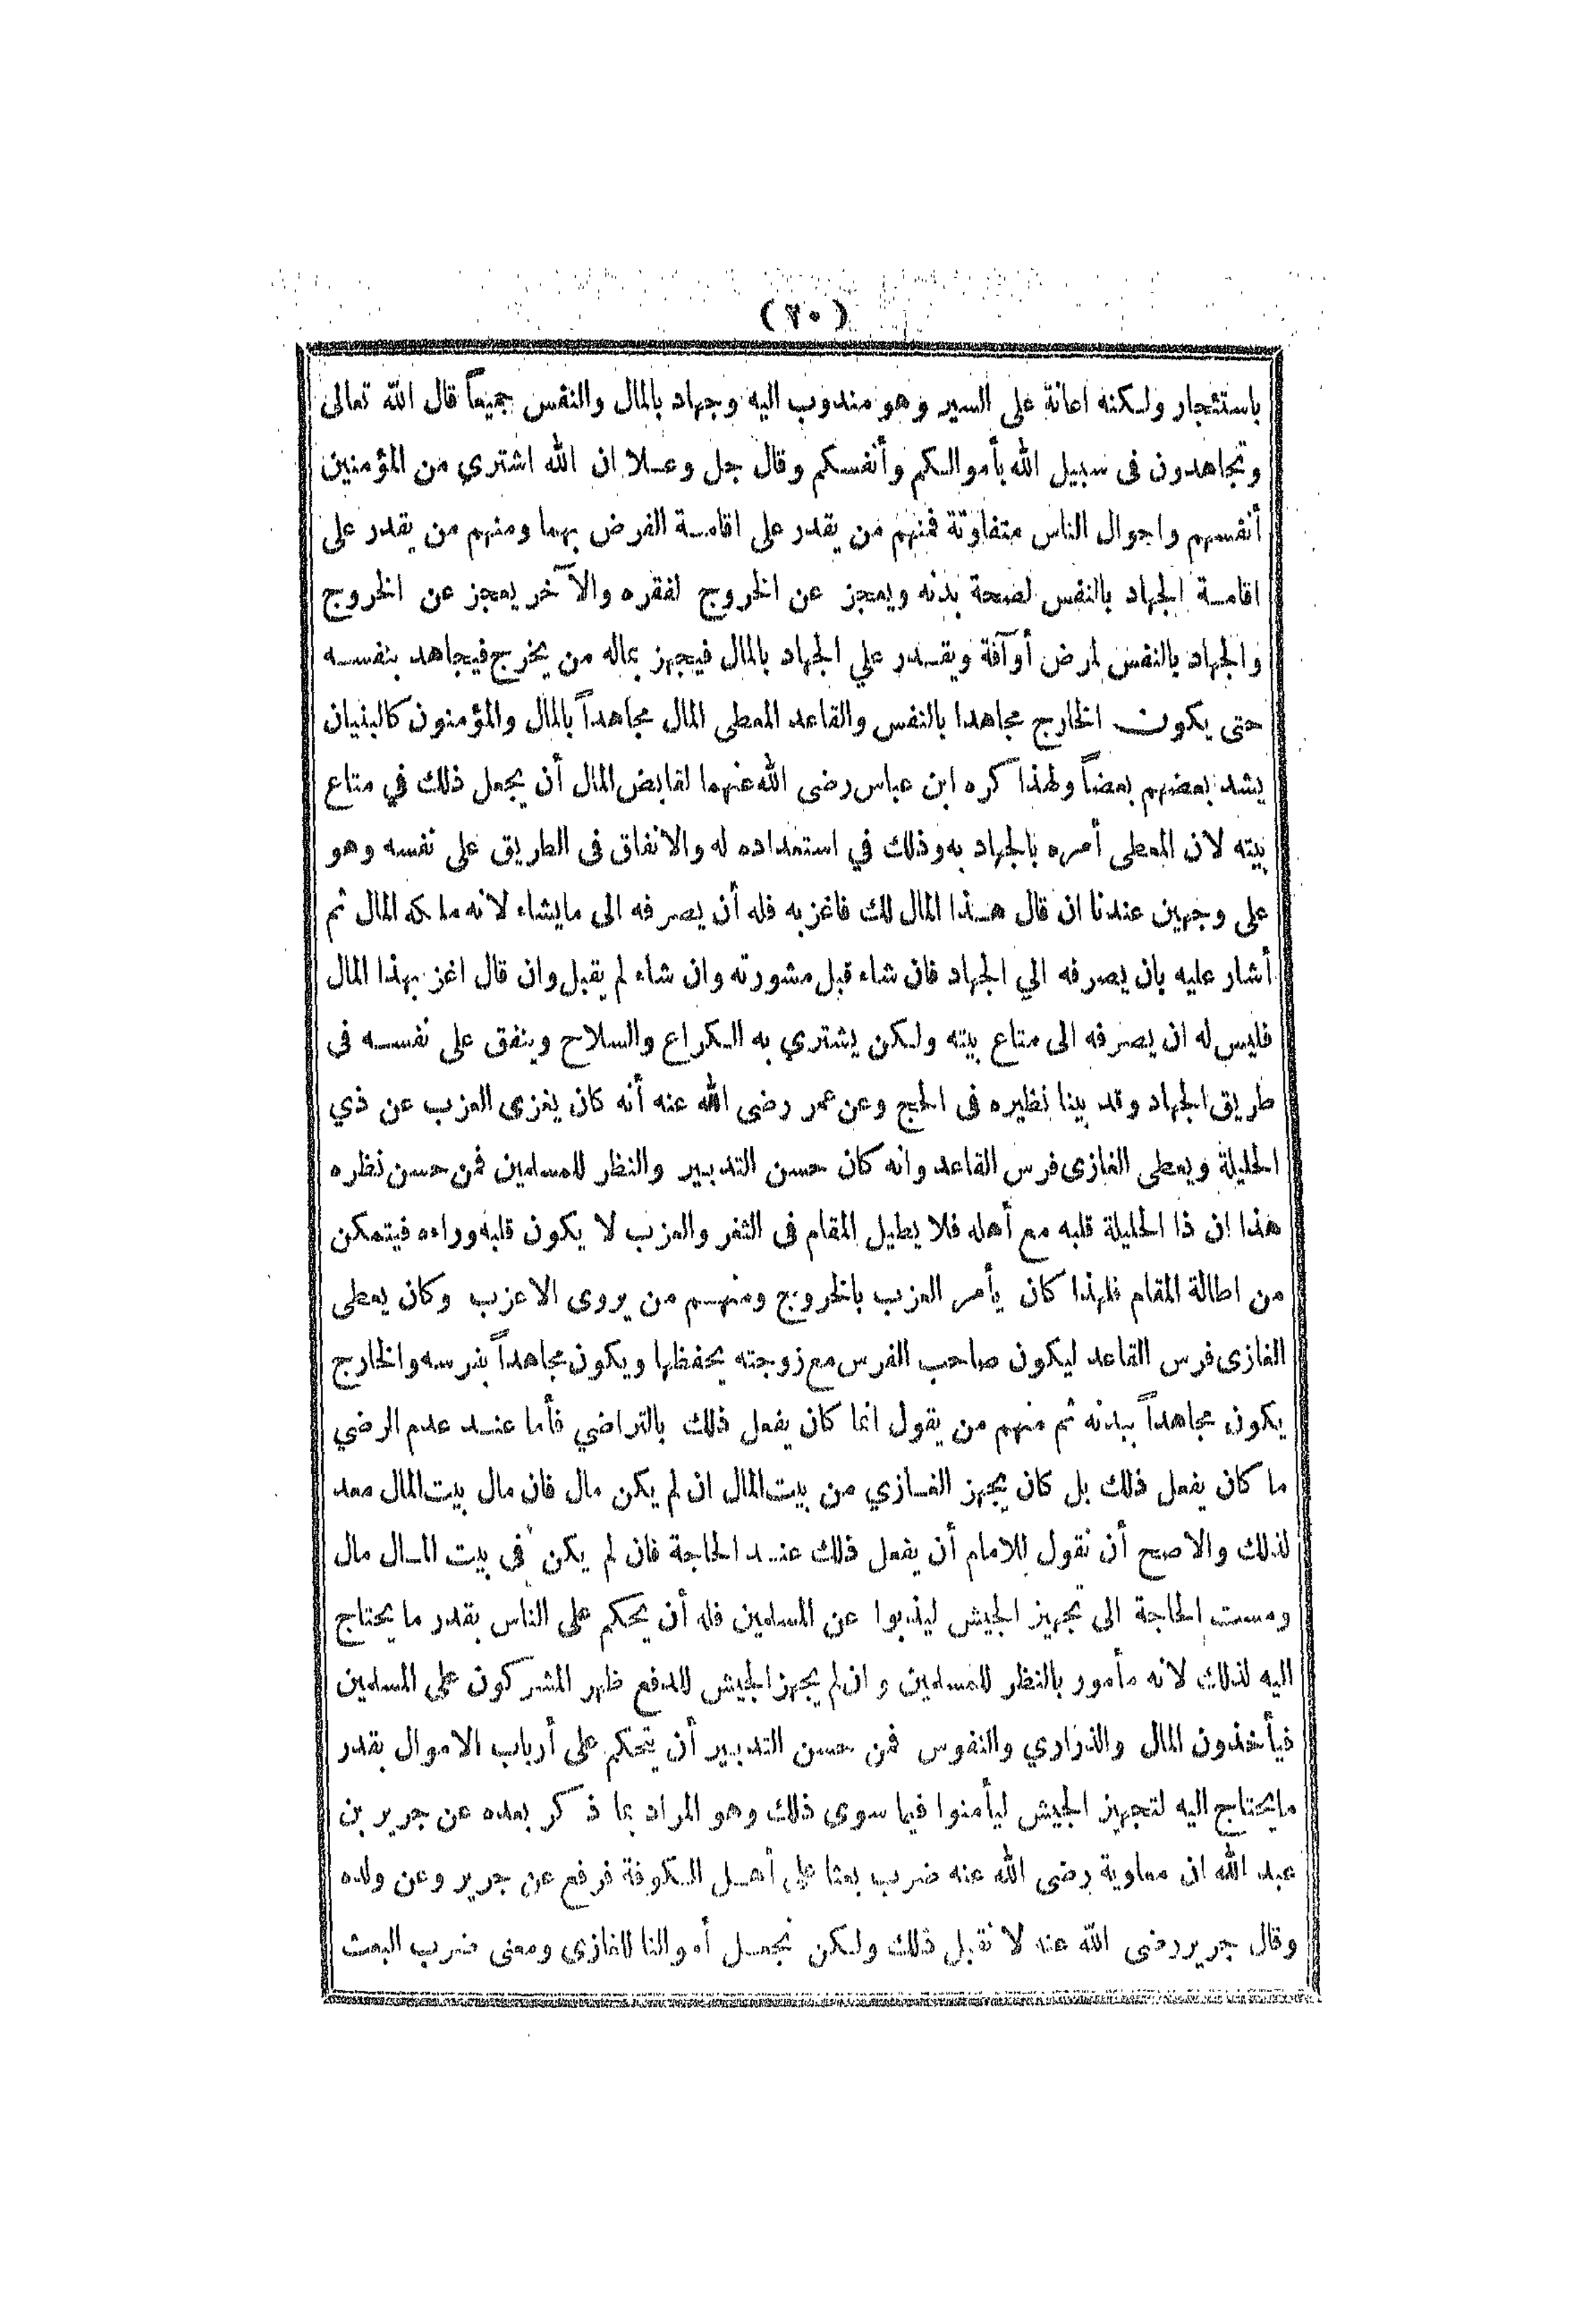 (٢٠)
باستئجار ولكنه اعانة على السير وهو مندوب اليه وجهاد بالمال والنفس جميعاً قال الله تعالى
وتجاهدون فى سبيل الله بأموالكم وأنفسكم وقال جل وعلا ان الله اشتري من المؤمنين
أنفسهم واحوال الناس متفاوتة فمنهم من يقدر على اقامة الفرض بهما ومنهم من يقدر على
اقامة الجهاد بالنفس لصحة بدنه ويعجز عن الخروج لفقره والآخر يعجز عن الخروج
والجهاد بالنفس لمرض أو آفة ويقدر علي الجهاد بالمال فيجهز بماله من يخرج فيجاهد بنفسه
حتى يكون الخارج مجاهدا بالنفس والقاعد المعطى المال مجاهداً بالمال والمؤمنون كالبنيان
يشد بعضهم بعضاً ولهذا كره ابن عباس رضى الله عنهما لقابض المال أن يجعل ذلك في متاع
بيته لان المعطى أمره بالجهاد به وذلك في استعداده له والانفاق فى الطريق على نفسه وهو
على وجهين عندنا ان قال هذا المال لك فاغز به فله أن يصرفه الى ما يشاء لانه ملكه المال ثم
أشار عليه بان يصرفه الي الجهاد فان شاء قبل مشورته وان شاء لم يقبل وان قال اغز بهذا المال
فليس له ان يصرفه الى متاع بيته ولكن يشتري به الكراع والسلاح وينفق على نفسه فى
طريق الجهاد وقد بينا نظيره فى الحج وعن عمر رضى الله عنه أنه كان يغزى العزب عن ذي
الحليلة ويعطى الغازى فرس القاعد وانه كان حسن التدبير والنظر للمسلمين فمن حسن نظره
هذا ان ذا الحليلة قلبه مع أهله فلا يطيل المقام فى الثغر والعزب لا يكون قلبه وراءه فيتمكن
من اطالة المقام فلهذا كان يأمر العزب بالخروج ومنهم من يروى الاعزب وكان يعطى
الغازى فرس القاعد ليكون صاحب الفرس مع زوجته يحفظها ويكون مجاهداً بفرسه والخارج
يكون مجاهداً ببدنه ثم منهم من يقول انما كان يفعل ذلك بالتراضي فأما عند عدم الرضي
ما كان يفعل ذلك بل كان يجهز الغازي من بيت المال ان لم يكن مال فان مال بيت المال معد
لذلك والاصح أن نقول للامام أن يفعل ذلك عند الحاجة فان لم يكن فى بيت المال مال
ومست الحاجة الى تجهيز الجيش ليذبوا عن المسلمين فله أن يحكم على الناس بقدر ما يحتاج
اليه لذلك لانه مأمور بالنظر للمسلمين وان لم يجهز الجيش للدفع ظهر المشركون على المسلمين
فيأخذون المال والذراري والنفوس فمن حسن التدبير أن يتحكم على أرباب الاموال بقدر
ما يحتاج اليه لتجهيز الجيش ليأمنوا فيما سوى ذلك وهو المراد بما ذكر بعده عن جرير بن
عبد الله ان معاوية رضى الله عنه ضرب بعثا على أهل الكوفة فرفع عن جرير وعن ولده
وقال جرير رضى الله عنه لا نقبل ذلك ولكن نجعل أموالنا للغازى ومعنى ضرب البعث